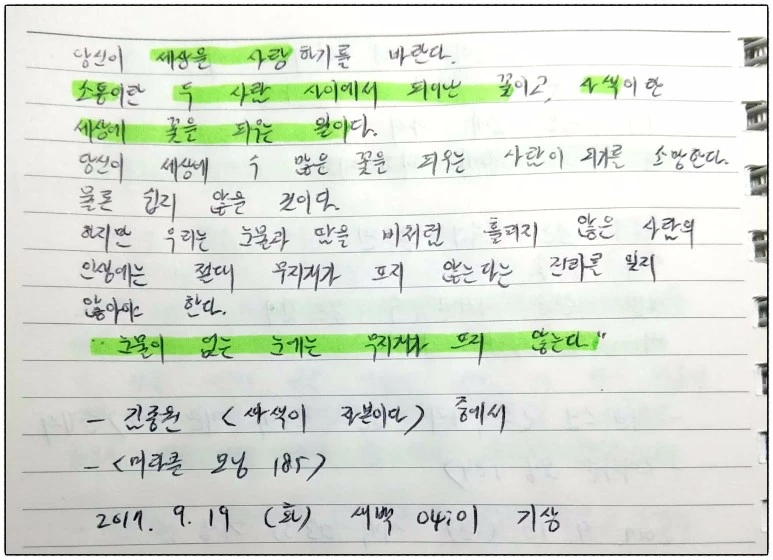 당신이 세상을 사랑하기를 바란다.
소통이란 두 사람 사이에서 피어난 꽃이고, 사색이란
세상에 꽃을 피우는 일이다.
당신이 세상에 수 많은 꽃을 피우는 사람이 되기를 소망한다.
물론 쉽지 않을 것이다.
하지만 우리는 눈물과 땀을 비처럼 흘리지 않은 사람의
인생에는 절대 무지개가 뜨지 않는다는 진리를 잊지
않아야 한다.
"눈물이 없는 눈에는 무지개가 뜨지 않는다."
- 김종원 <사색이 자본이다> 중에서
- <미라클 모닝 185>
2017. 9. 19 (화) 새벽 04:01 기상